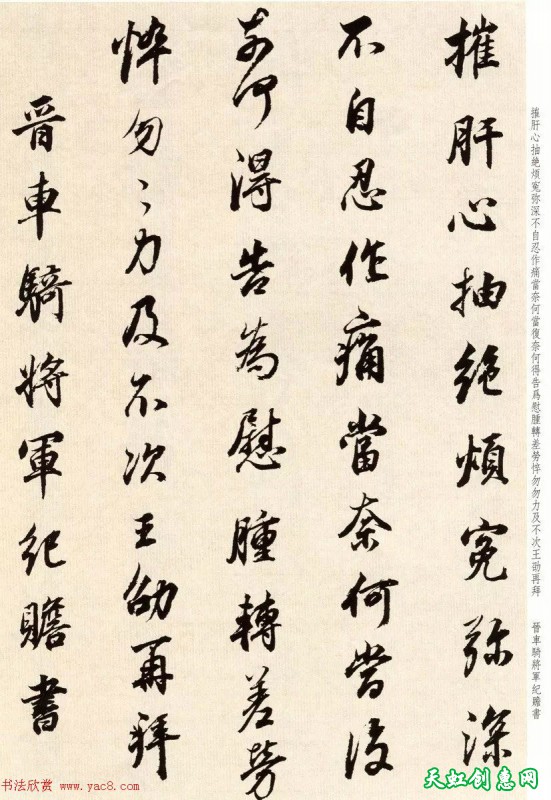 摧肝心抽絶煩冤弥深
不自忍作痛當奈何當復
奈何得告為慰腫轉差勞
悴勿〻力及不次王劭再拜
晉車騎將軍紀瞻書
摧肝心抽絶煩冤弥深不自忍作痛當奈何當復奈何得告爲慰腫轉差勞悴勿勿力及不次王劭再拜 晉車騎將軍紀瞻書
书法欣赏 www.yac8.com
天虹创惠网